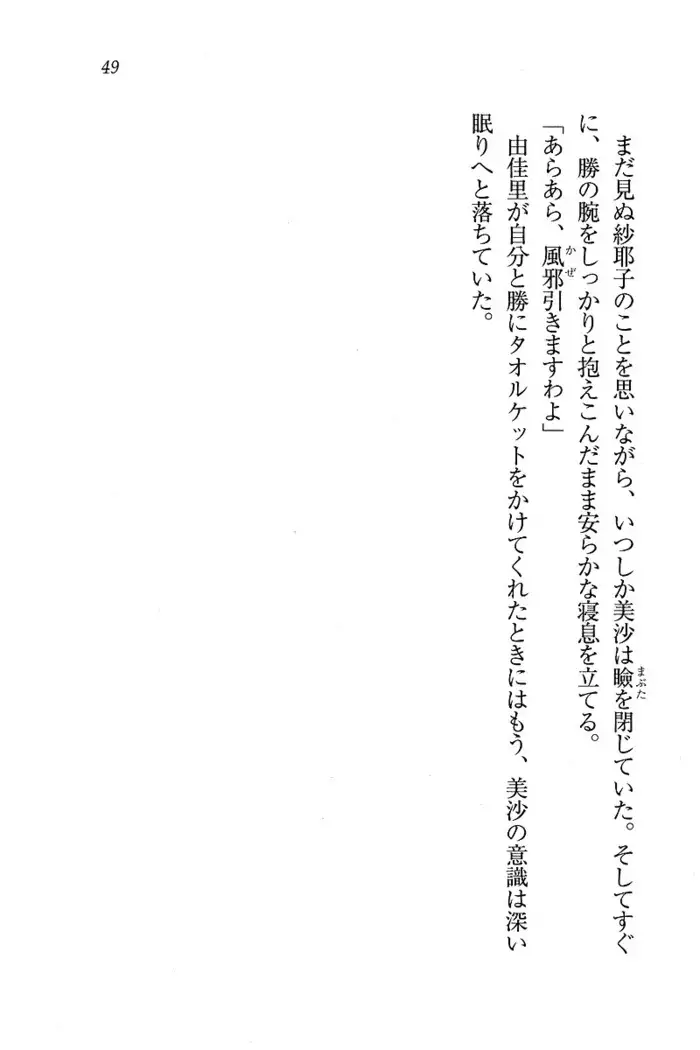 49
まだ見ぬ紗耶子のことを思いながら、いつしか美沙は瞼を閉じていた。そしてすぐ
に、勝の腕をしっかりと抱えこんだまま安らかな寝息を立てる。
「あらあら、風邪引きますわよ」
由佳里が自分と勝にタオルケットをかけてくれたときにはもう、美沙の意識は深い
眠りへと落ちていた。
まぶた
かぜ